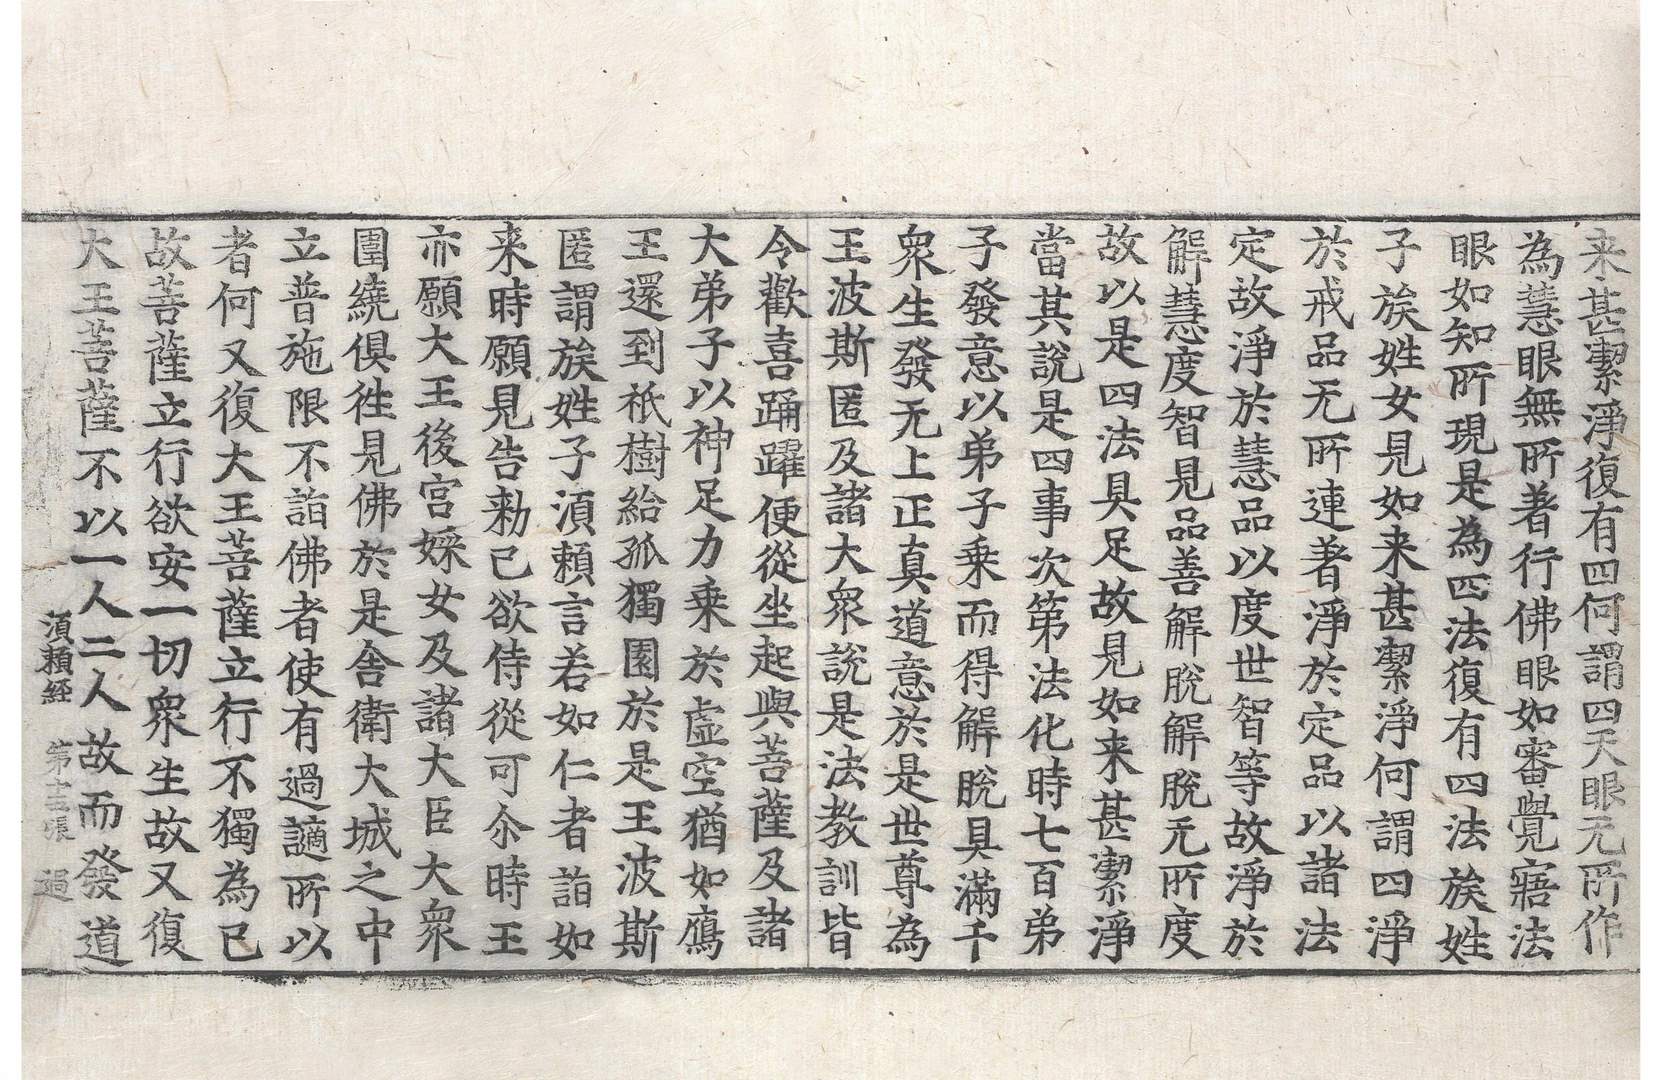 来甚潔淨復有四何謂四天眼无所作
為慧眼無所著行佛眼如審覺寤法
眼如知所現是為四法復有四法族姓
子族姓女見如来甚潔淨何謂四淨
於戒品无所連著淨於定品以諸法
定故淨於慧品以度世智等故淨於
解慧度智見品善解脫解脫无所度
故以是四法具足故見如来甚潔淨
當其說是四事次第法化時七百弟
子發意以弟子乘而得解脫具滿千
衆生發无上正真道意於是世尊為
王波斯匿及諸大衆說是法教訓皆
令歡喜踊躍便從坐起與菩薩及諸
大弟子以神足力乗於虛空猶如鴈
王還到祇樹給孤獨園於是王波斯
匿謂族姓子湏頼言若如仁者詣如
来時願見告勑已欲侍從可尒時王
亦願大王後宮婇女及諸大臣大衆
圍繞俱徃見佛於是舍衛大城之中
立普施限不詣佛者使有過讁所以
者何又復大王菩薩立行不獨為已
故菩薩立行欲安一切衆生故又復
大王菩薩不以一人二人故而發道
湏頼経 第十三張 過